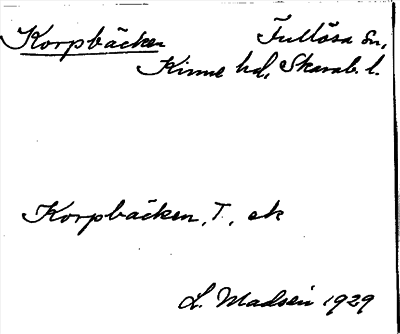 Korpbäcken Fullösa sn,
Kinne hd, Skarab. l.
Korpbäcken, T, ek
L. Madsén 1929